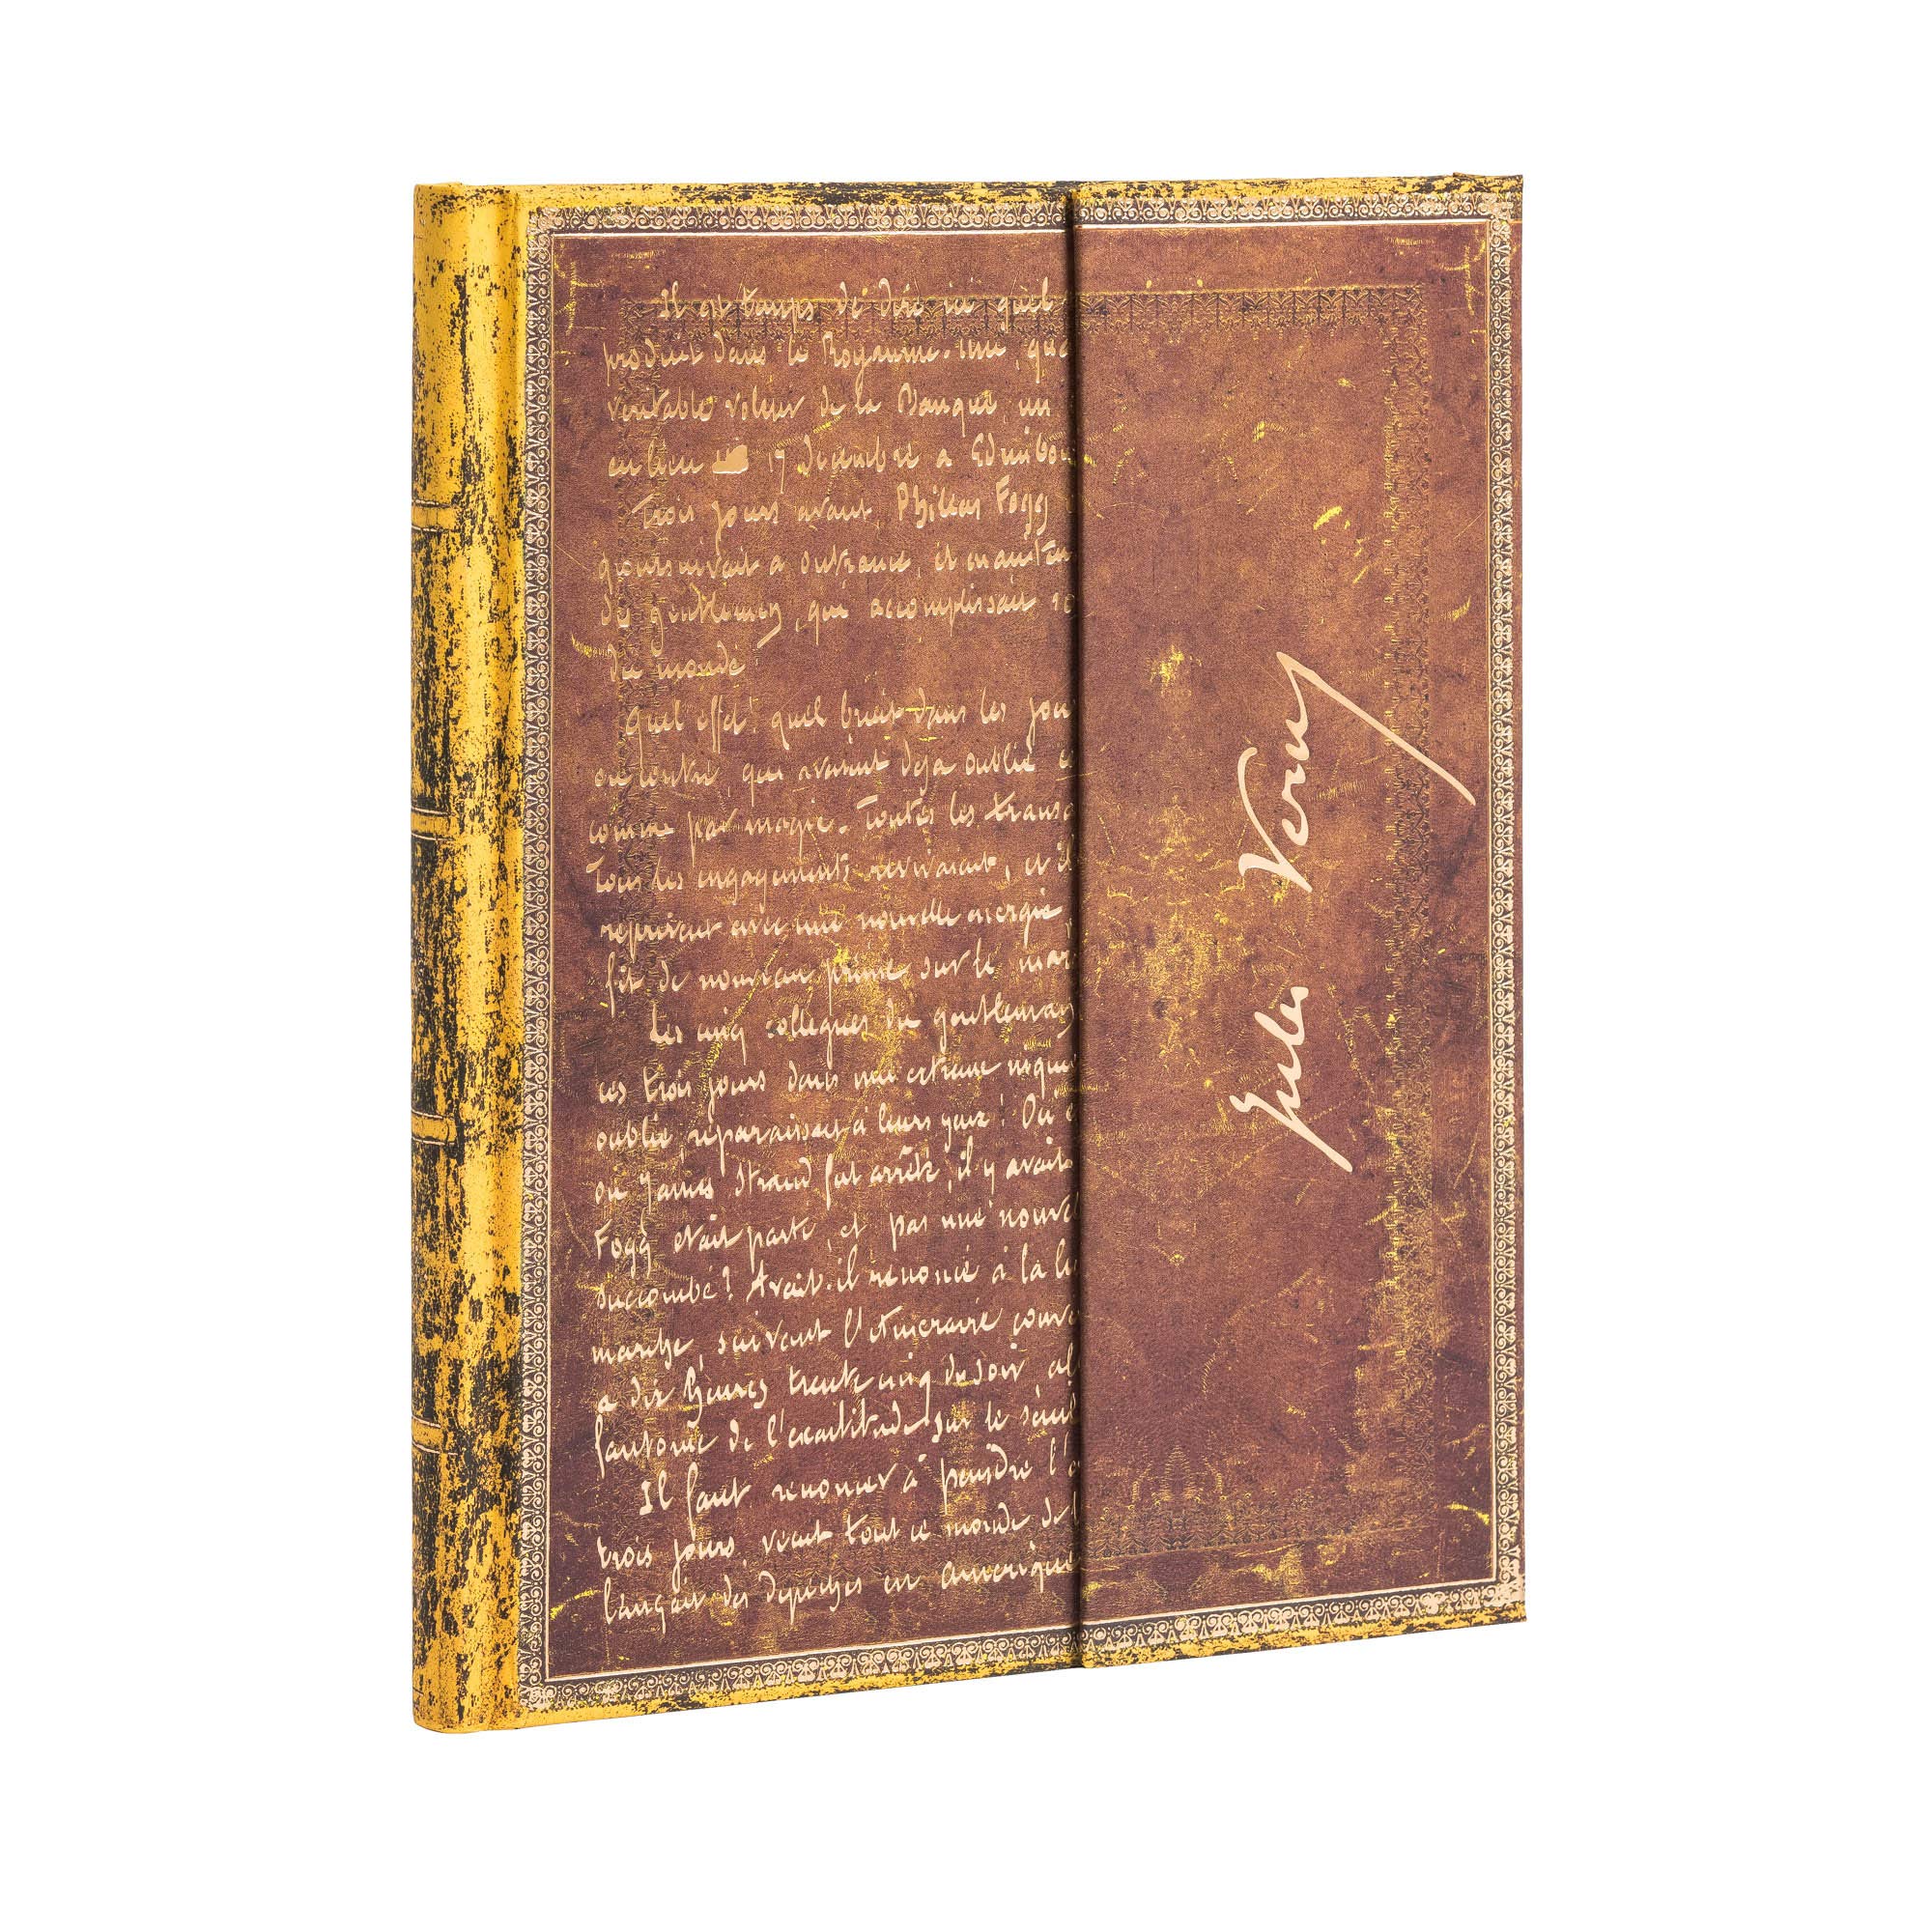 Il est temps de dire ici quel
produit dans le Royaume-Uni, qua
veritable voleur de la Banque, un
en lieu 17 Decembre a Edimbou
Trois jours avant, Phileas Fogg
poursuivait a outrance, et mainten
de gentleman, qui accomplissait so
du monde
Quel effet! quel bruit dans les jou
ou contre, qui avaient deja oublié c
comme par magie. Toutes les transa
Tous les engagements revivaient, et il
reprirent avec une nouvelle energie,
fit de nouveau prime sur le mar
Les cinq collegues du gentleman
ces trois jours dans une
oublié, reparaissait à leurs yeux! Où
où James Strand fut arrêté, il y avait
Fogg etait parti, et pas une nouvel
succombé? Avait-il renoncé à la lu
marche, suivant l'itineraire conve
a dix heures trente cinq du soir al
fantome de l'exactitude, sur le seuil
Il faut renoncer à peindre l'
trois jours, vécut tout ce monde de l
lançait des depêches en Amerique
Jules Verne